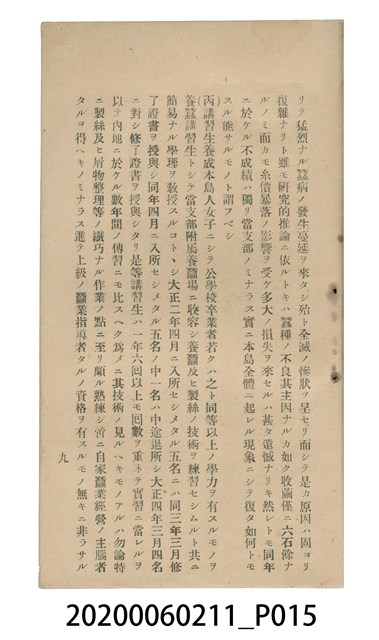 リテ猛烈ナル蠶病ノ發生蔓延ヲ來タシ殆ト全滅ノ慘狀ヲ呈セリ而シテ是カ原因ハ固ヨリ
復雜ナリト雖モ研究的推論ニ依ルトキハ蠶種ノ不良其主因ナルカ如ク收繭僅ニ六石餘ナ
ルノミ而カモ糸價暴落ノ影響ヲ受ケ多大ノ損失ヲ來セルハ甚タ遺憾ナリキ然レトモ同年
ニ於ケル不成績ハ獨リ當支部ノミナラス實ニ本島全體ニ起レル現象ニシテ復タ如何トモ
スル能サルモノト謂フベシ
(丙)講習生養成本島人女子ニシテ公學校卒業者若クハ之ト同等以上ノ學力ヲ有スルモノヲ
養蠶講習生トシテ當支部附屬養蠶場ニ收容シ養蠶及ヒ製絲ノ技術ヲ練習セシムルト共ニ
簡易ナル學理ヲ敎授スルコトヽシ大正二年四月ニ入所セシメタル五名ニハ同三年三月修
了證書ヲ授與シ同年四月ニ入所セシメタル五名ノ中一名ハ中途退所シ大正四年三月四名
ニ對シ修了證書ヲ授與シタリ是等講習生ハ一年六回以上モ回數ヲ重ネテ實習ニ當レルヲ
以テ內地ニ於ケル數年間ノ傳習ニモ比スヘク爲メニ其技術ノ見ルヘキモノアルハ勿論特
ニ製絲及ヒ屑物整理等ノ纖巧ナル作業ノ點ニ至リ頗ル熟練シ啻ニ自家蠶業經營ノ主腦者
タルコト得ヘキノミナラス進テ上級ノ蠶業指導者タルノ資格ヲ有スルモノ無キニ非ラサル
九
20200060211_P015